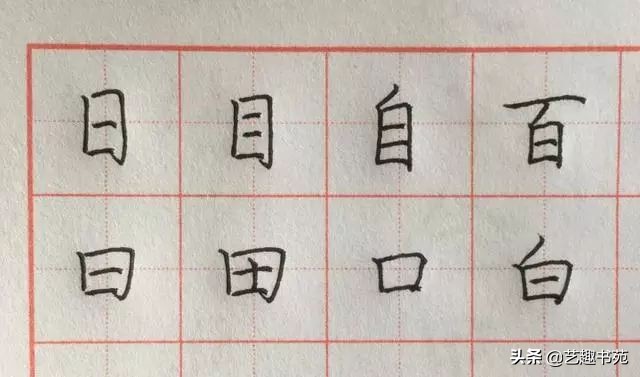 日目自百
曰田口白
头条 @艺趣书苑